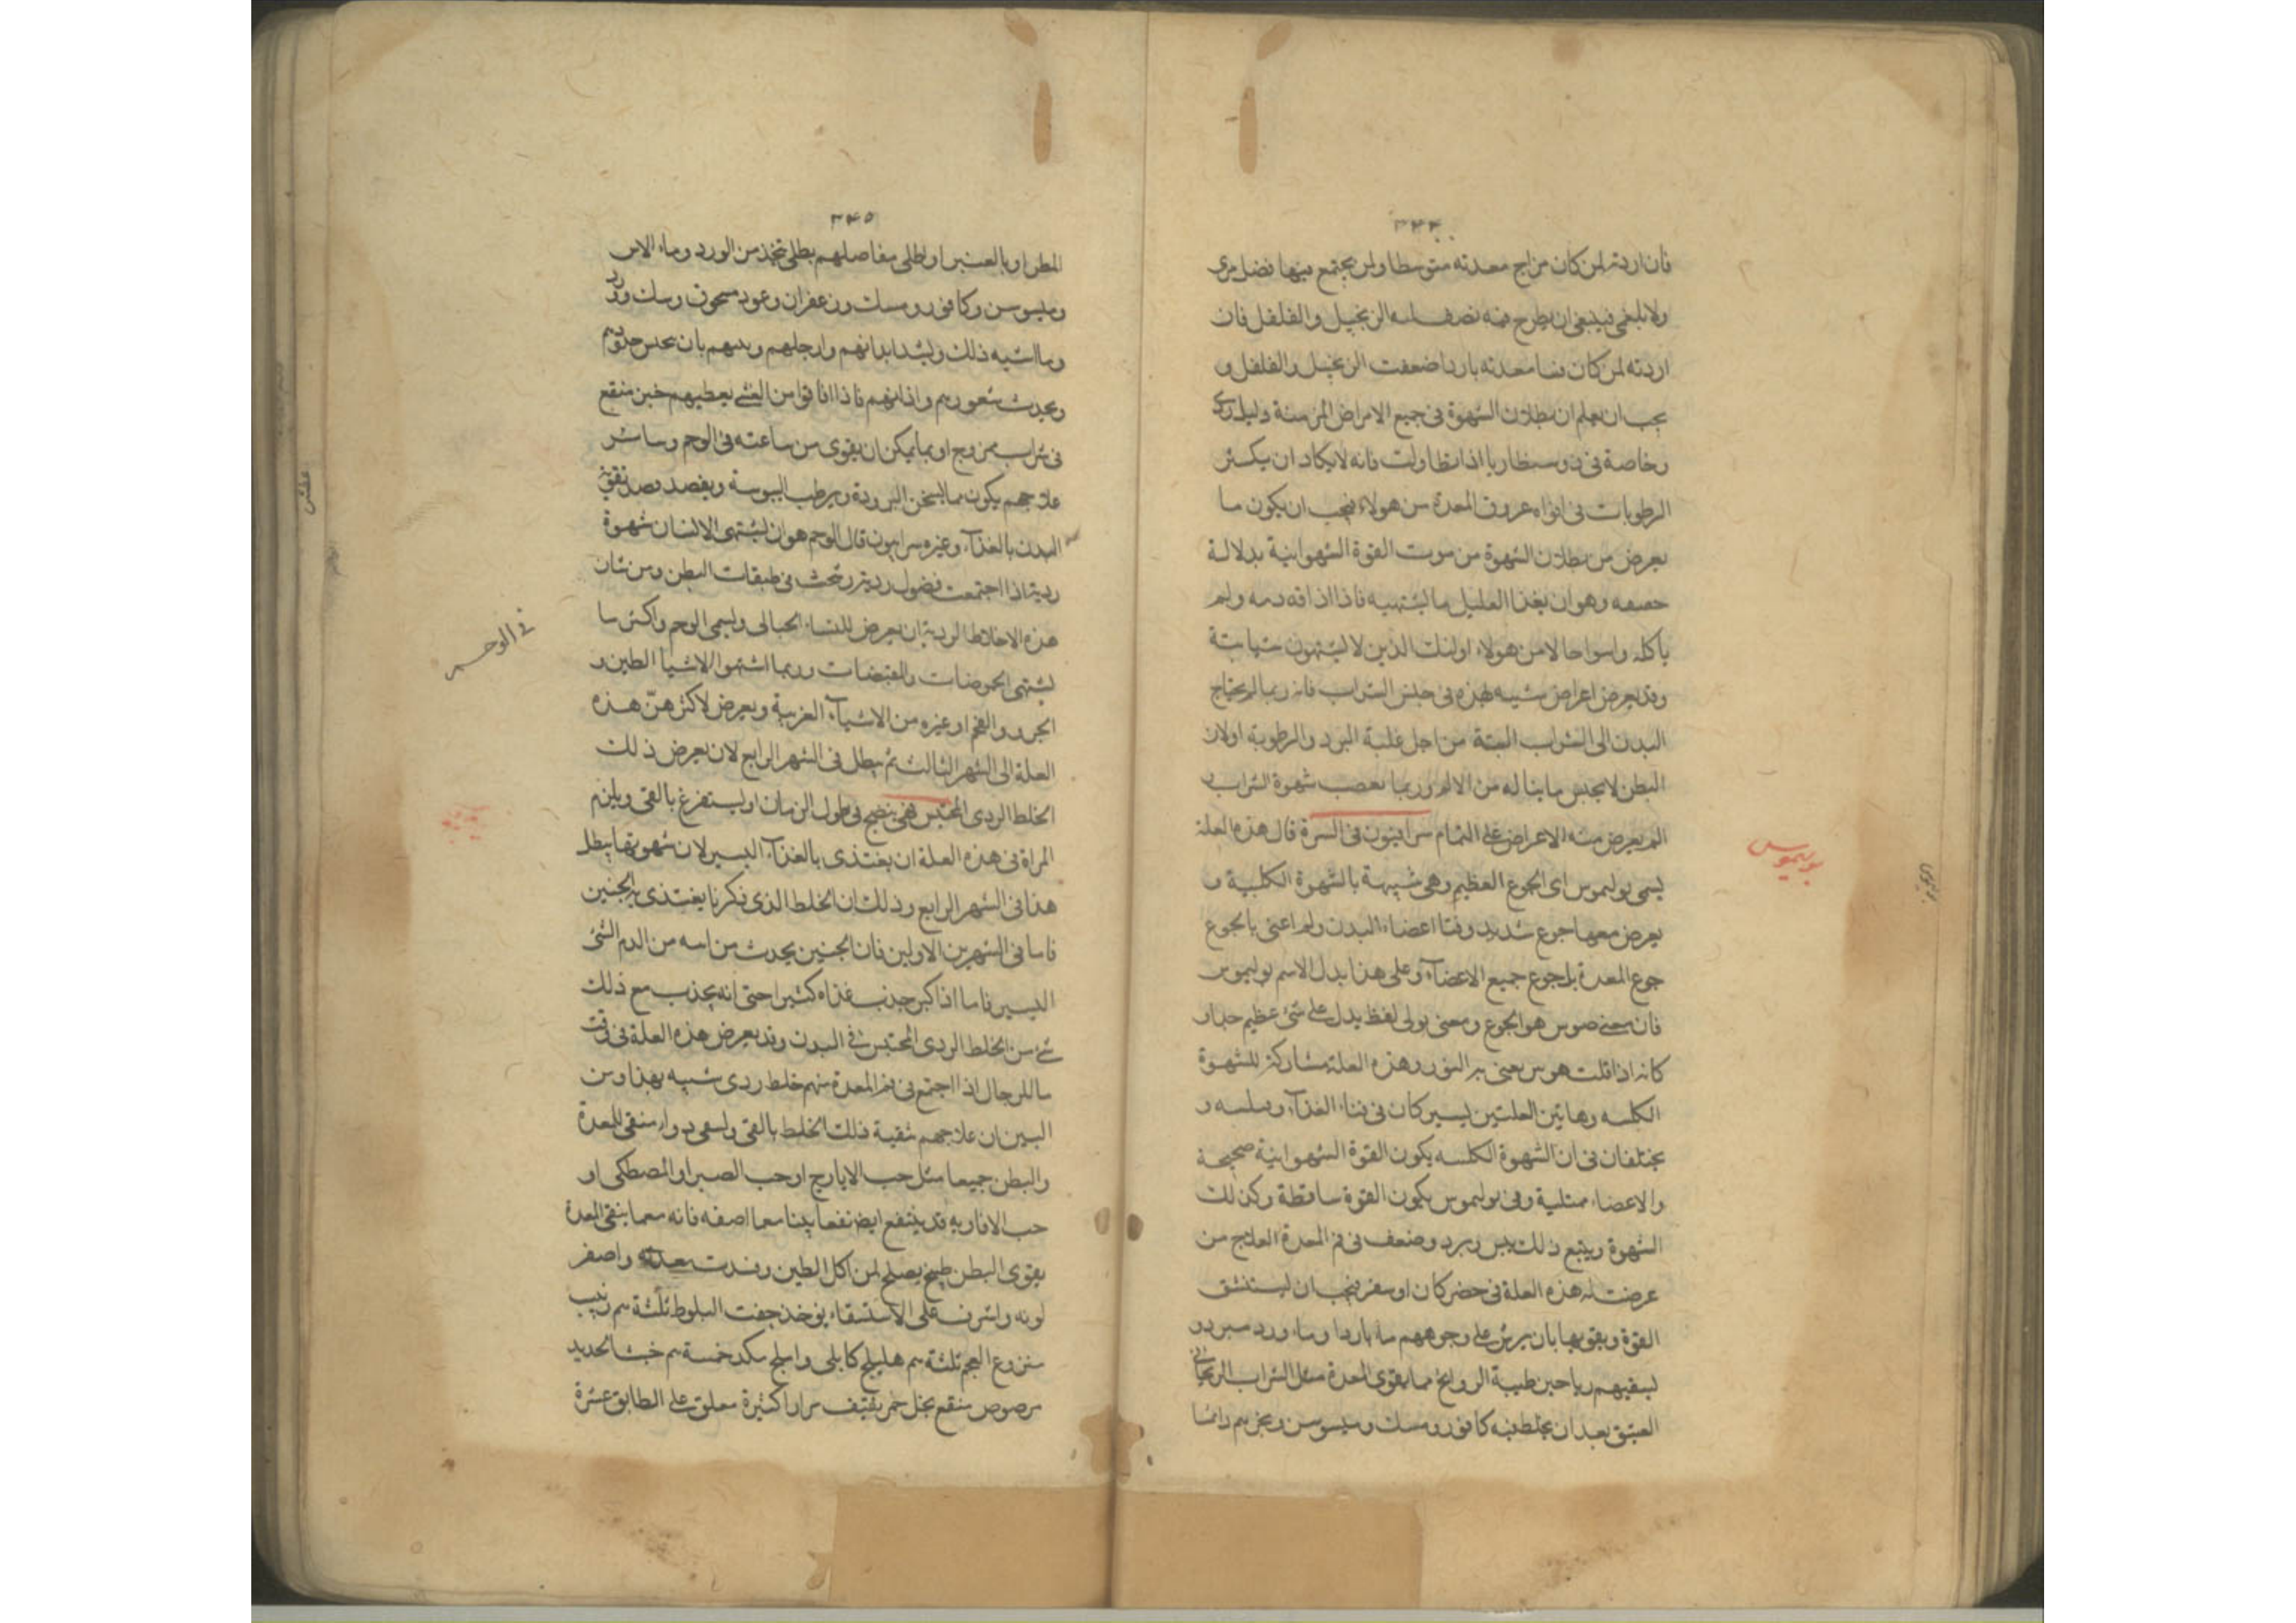 ٣٤٤
فان اردته لمن كان مزاج معدته متوسطا ولم يجتمع فيها فضل مرى
ولا بلغمى فينبغى ان يطرح منه نصف الزنجبيل والفلفل فان
اردته لمن كان معدته باردا ضعفت الزنجبيل والفلفل و
يجب ان يعلم ان بطلان الشهوة فى جميع الامراض المزمنة دليل ردى
وخاصة فى ذوسنطاريا اذا تطاولت فانه لا يكاد ان يكثر
الرطوبات فى افواه عروق المعدة من هولاء فيجب ان يكون ما
يعرض من بطلان الشهوة من موت القوة الشهوانية بدلالة
وهو ان بغذا العليل ما يشتهيه فاذا ذاقه ذمه ولم
ياكله واسوا حالا من هولاء اولئك الذين لا يشتهون شيا بتة
وقد يعرض اعراض شبيه بهذه فى جنس الشراب فانه ربما لم يحتاج
البدن الى الشراب البتة من اجل غلبة البرد والرطوبة او لان
البطن لا يحس ما يناله من الالم وربما شهوة الشراب
الم يعرض منه الاعراض على التمام سرابيون فى السرة قال هذه العلة
بوليموس
يسمى بوليموس اى الجوع العظيم وهى شبيهة بالشهوة الكلبية و
يعرض معها جوع شديد اعضاء البدن ولم اعنى بالجوع
جوع المعدة بل جوع جميع الاعضآء وعلى هذا يدل الاسم بوليموس
فان معنى موس هو الجوع ومعنى بولى لفظ يدل على شئ عظيم جدا و
كانه اذا قلت هوس يعنى به الثور وهذه العلة مشاركة للشهوة
الكلبيه وهاتين العلتين يسير كان فى فناء الغذآء و
يختلفان فى ان الشهوة الكلبيه يكون القوة الشهوانية صحيحة
والاعضاء ممتلية وفى بوليموس يكون القوة ساقطة وكذلك
الشهوة ويتبع ذلك يبس وبرد وضعف فى فم المعدة العلاج من
عرضت له هذه العلة فى حضر كان او سفر فيجب ان يستنشق
القوة ويقويها بان يرش على وجوههم ماء باردا وماء ورد مبرد و
يسقيهم رياحين طيبة الروايح مما يقوى المعدة مثل الشراب الريحانى
العتيق بعد ان يخلط فيه كافور ومسك وميسوسن ويخبزهم دائما
٣٤٥
المطرا وبالعنبر او يطلى مفاصلهم بطلى يتخذ من الورد وماء الاس
وميسوسن وكافور ومسك وزعفران وعود مسحوق وسك وورد
وما اشبه ذلك ويشد ابدانهم وارجلهم
ويجدب شعورهم واذانهم فاذا افاقوا من الغشى يعطيهم خبز منقع
فى شراب ممزوج او بما يمكن ان يقوى من ساعته فى الوحم وسائر
علاجهم يكون مما يسخن البرودة ويرطب اليبوسة ويقصد قصد تقوية
البدن بالغذآء وغيره سرابيون قال الوحم هو ان يشتهى الانسان شهوة
ردية اذا اجتمعت فضول ردية رشحت فى طبقات البطن ومن شان
هذه الاخلاط الردية ان يعرض للنساء الحبالى ويسمى الوحم واكثر ما
فى الوحم
يشتهى الحموضات والقبضات وربما اشتهوا الاشيا الطين و
الجرد والفحم او غيره من الاشيآء الغريبة ويعرض لاكثرهنّ هذه
العلة الى الشهر الثالث ثم يبطل فى الشهر الرابع لان يعرض ذلك
الخلط الردى المحتبس فهى ينضج فى طول الزمان او يستفرغ بالقى ويلزم
المراة فى هذه العلة ان يغتذى بالغذآء اليسير لان شهوتها يبطل
هذا فى الشهر الرابع وذلك ان الخلط الذى ذكرنا يغتذى به الجنين
فاما فى الشهرين الاولين فان الجنين يجدب من امه من الدم الشئ
اليسير فاما اذا كبر جذب غذاء كثيرا حتى انه يجذب مع ذلك
شئ من الخلط الردى المحتبس فى البدن وقد يعرض هذه العلة فى وقت
ما للرجال اذا اجتمع فى فم المعدة منهم خلط ردى شبيه بهذا ومن
البين ان علاجهم تنقية ذلك الخلط بالقى ويسقى دواء منقى للمعدة
والبطن جميعا مثل حب الايارج او حب الصبر او المصطكى او
حب الافاويه قد ينتفع ايضا نفعا بينا مما اصفه فانه معما ينقى المعدة
يقوى البطن طبيخ يصلح لمن اكل الطين وفسدت معدته واصفر
لونه واشرف على الاستسقاء يوخذ جفت البلوط ثلثة م زبيب
منزوع العجم ثلثة م هليلج كابلى واملج مكد خمسة م خبث الحديد
مرصوص منقع بخل خمر ثقيف مرارا كثيرة مغلى على الطابق عشرة